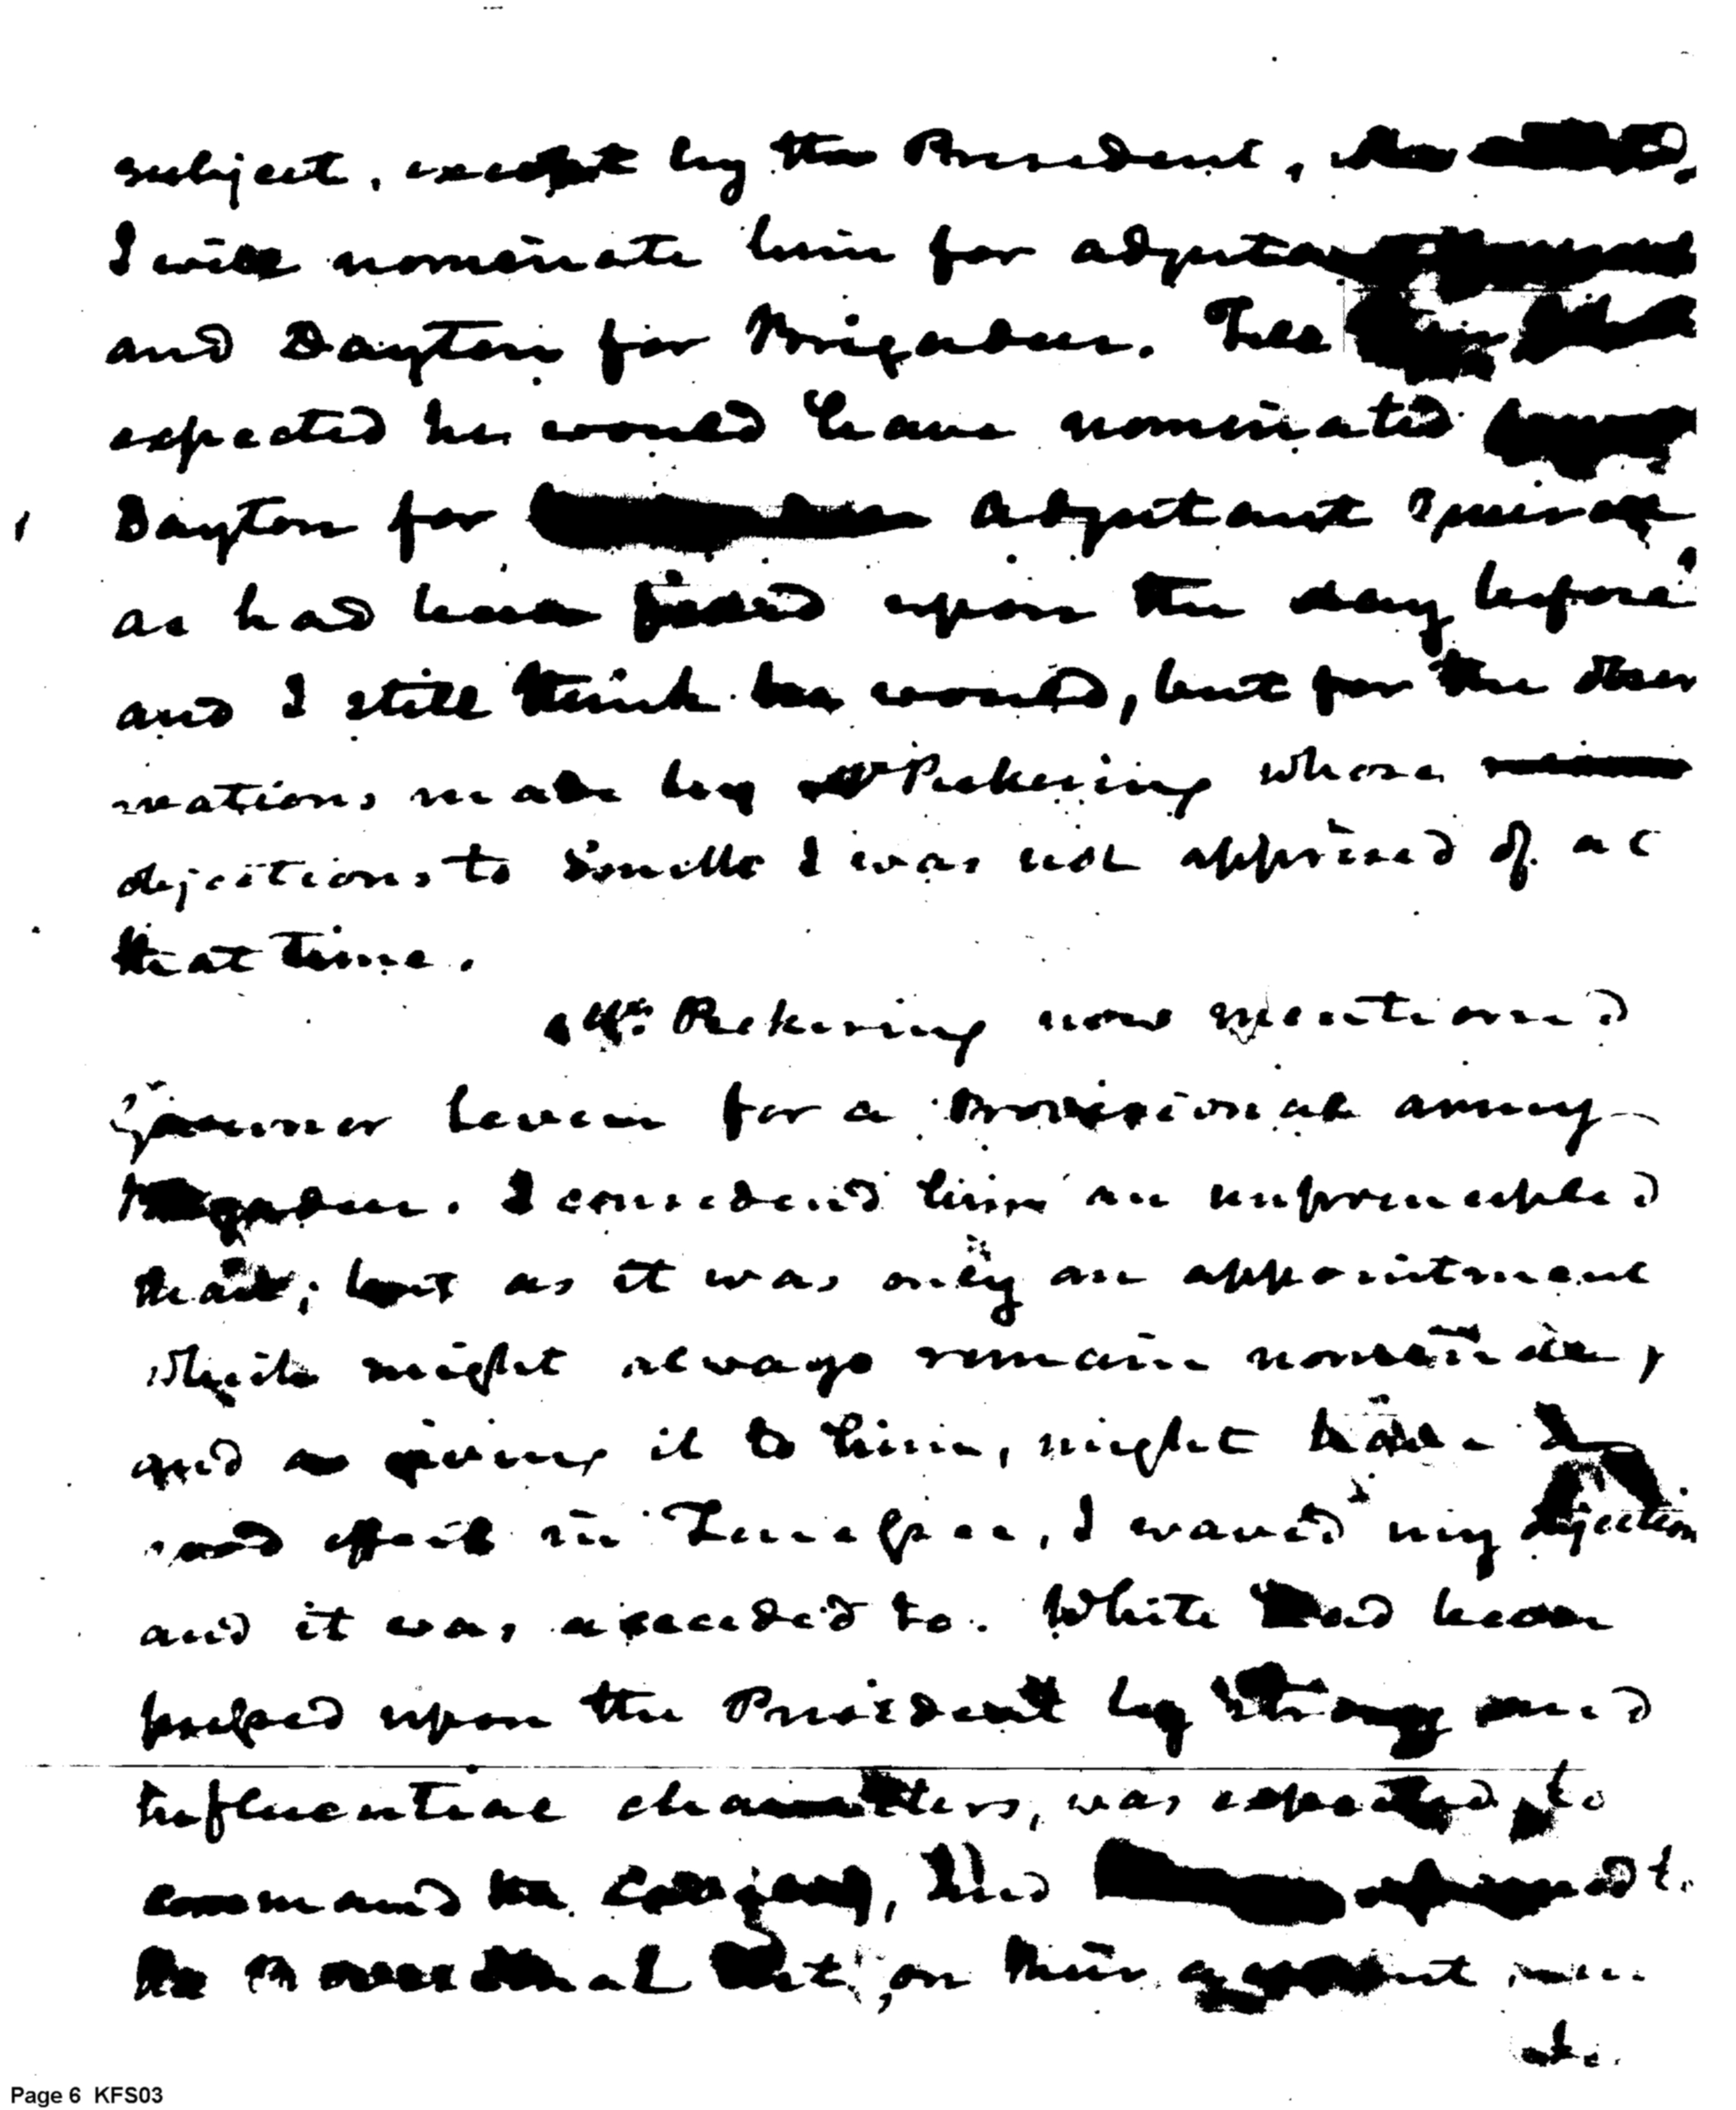 subject, except by the President, who
I will nominate him for adjutant
and Dayton for Brigadier. I
expected he would have nominated
Dayton for adjutant General
as had been fixed upon the day before
and I still think he would, but for the obser
vations made by Pickering whose
objections to Smith I was not apprised of at
that time.
Mr. Pickering now mentioned
Governor Sevier for a Provisional army
Brigadier. I considered him an unprincipled
man; but as it was only an appointment
which might always remain nominal,
and as giving it to him, might have a
good effect in Tenessee, I waved my objection
and it was acceded to. White had been
pressed upon the President by strong and
influential characters, was expected to
command the Cavalry, and
the on
Page 6 KFS03